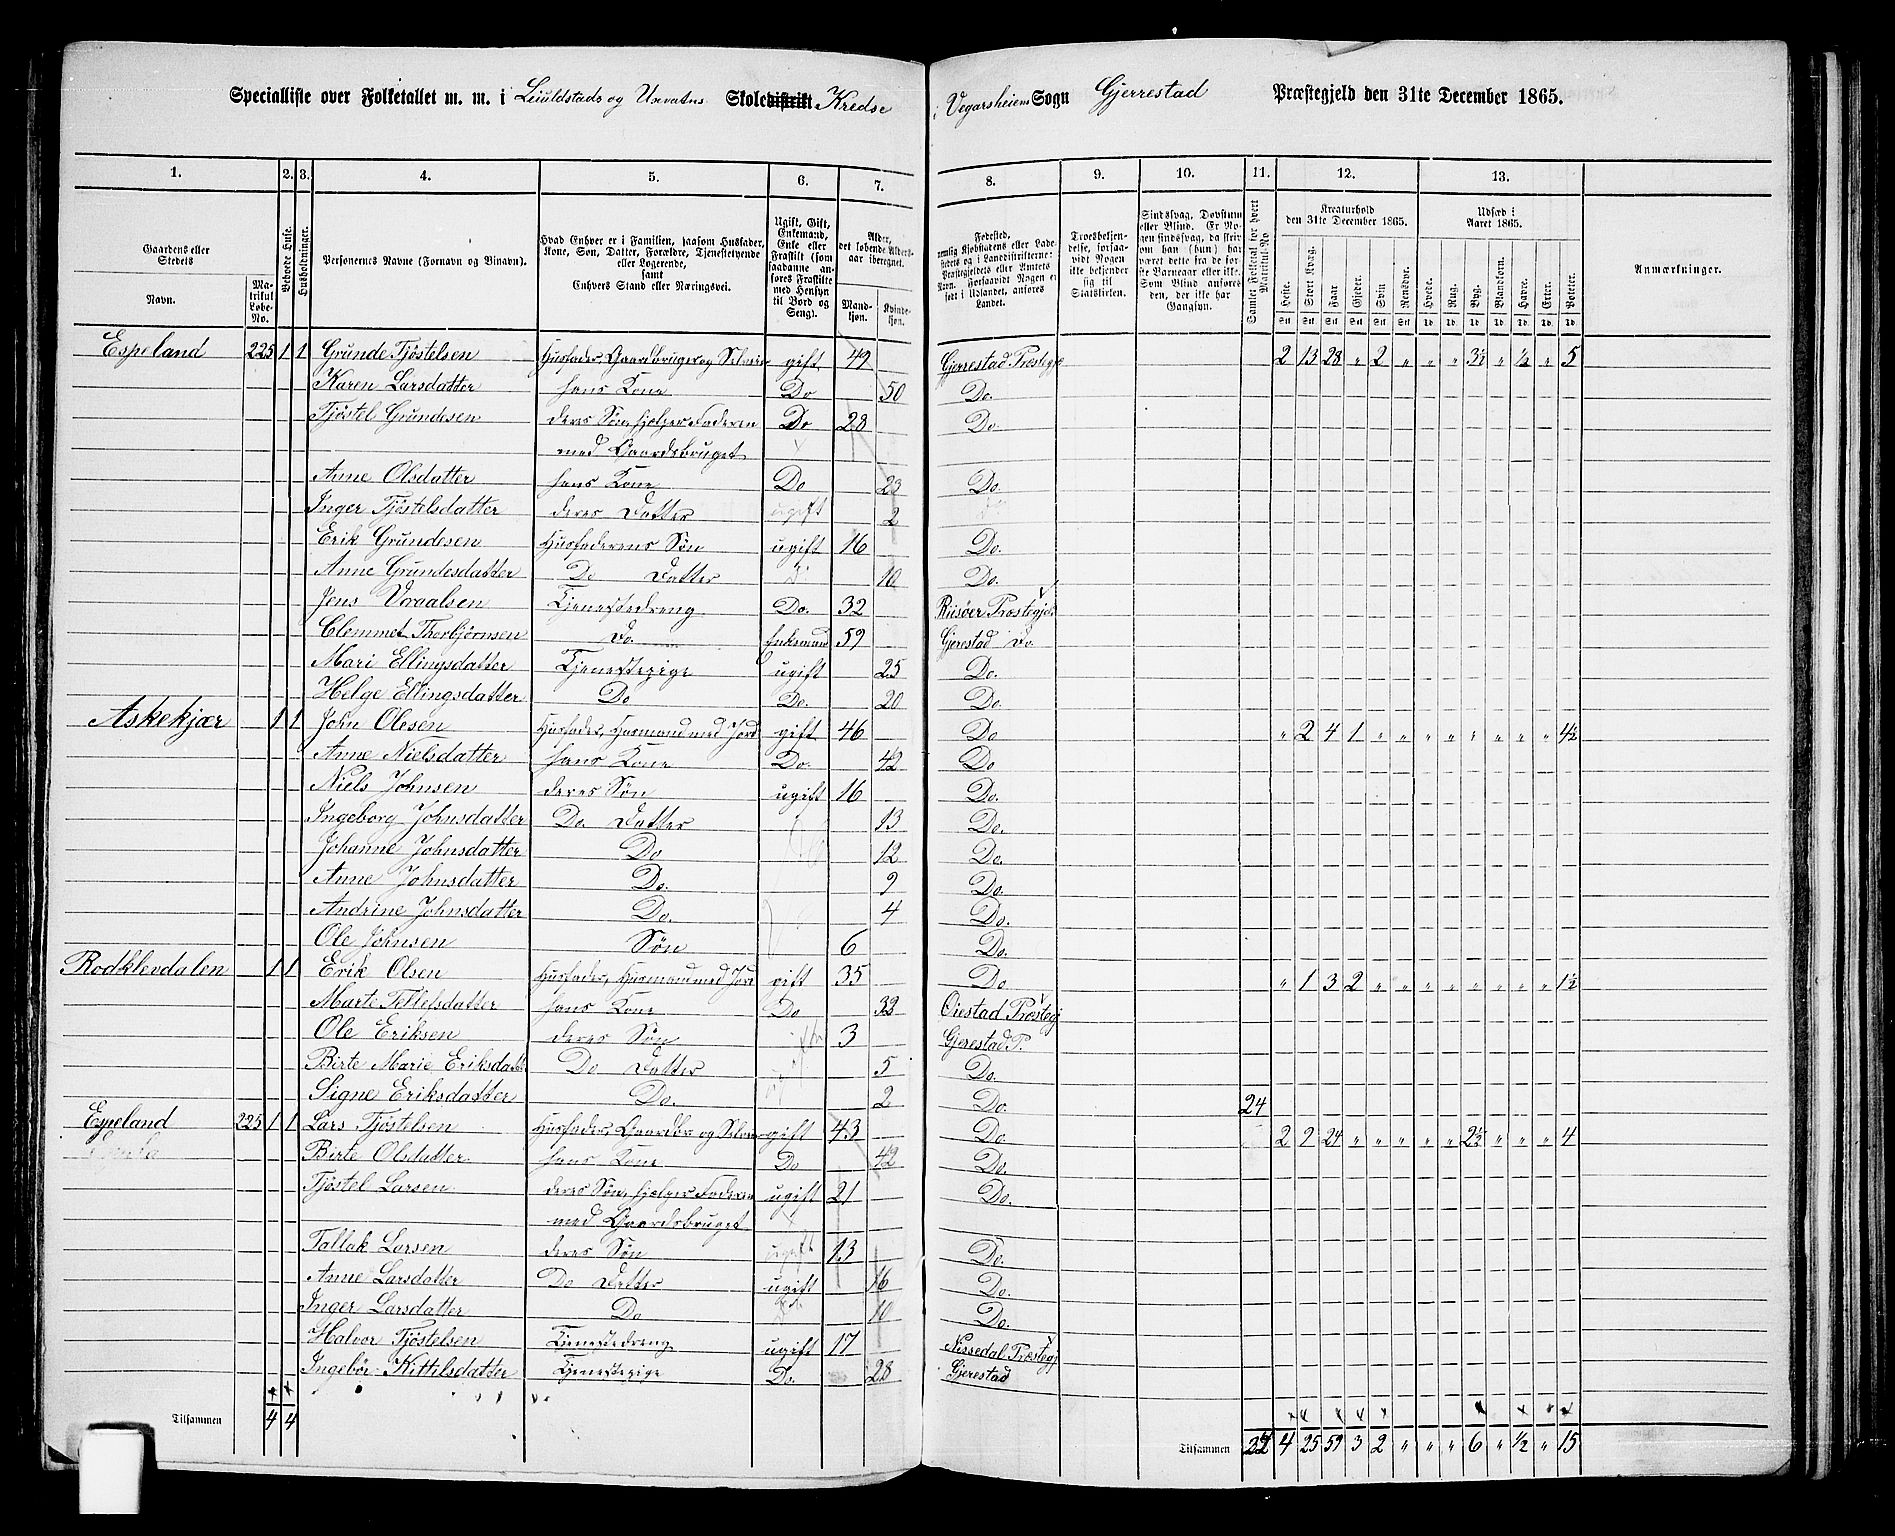 Specialliste over Folketallet m. m. i Liuldstads og Unvatns Skoledistrikt Kredse
i Vegarsheiens Sogn Gjerrestad Præstegjeld den 31te December 1865.
1. 2. 3. 4. 5. 6. 7. 8. 9. 10. 11. 12. 13.
Gaardens eller Stedets
Navn.
Matrikul Løbe-No.
Beboede Huse.
Husholdninger.
Personernes Navne (Fornavn og Tilnavn).
Hvad Enhver er i Familien, saasom Husfader, Kone, Søn, Datter, Forældre, Tjenestetyende eller Logerende,
samt
Enhvers Stand eller Næringsvei.
Ugift, Gift, Enkemand, Enke eller Fraskilt (som saadanne anføres Fraskilte med Hensyn til Bord og Seng).
Alder, det løbende Alders-aar iberegnet.
Mandkjøn.
Kvindekjøn.
Fødested,
Troesbekjendelse, forsaavidt Nogen ikke bekjender sig til Statskirken.
Sindssvag, Døvstum eller Blind.
Samlet Folketal for hvert Matrikul-No
Kreaturhold
den 31te December 1865.
Heste. Stort Kvæg. Faar. Gjeder. Svin. Rensdyr.
Udsæd i
Aaret 1865.
Hvede. Rug. Byg. Blandkorn. Havre. Erter. Poteter.
Anmærkninger.
Espeland 225 1 1 Grunde Tjöstelsen Husfader, Gaardbruger og Selveier gift 49 Gjerrestad Præstegj 2 13 28 " 2 " " " 3½ " ½ " 5
Karen Larsdatter hans Kone Do 50 Do.
Tjöstel Grundesen deres Søn, hjelper Faderen Do 28 Do.
med Gaardsbruget
Anne Olsdatter hans Kone Do 23 Do.
Inger Tjöstelsdatter deres Datter ugift 2
Erik Grundesen Husfaderens Søn ugift 16 Do.
Anne Grundesdatter Do Datter 10 Do.
Jens Vraalsen Tjenestedreng Do. 32 Risöer Præstegj.
Clemmet Thorbjörnsen Do. Enkemand 59 Gjerestad Do.
Mari Ellingsdatter Tjenestepige ugift 25 Do.
Helge Ellingsdatter Do Do. 20 Do.
Askekjær 1 1 John Olesen Husfader, Husmand med Jord gift 46 Do " 2 4 1 " " " " " " " " 4½
Anne Nielsdatter hans Kone Do. 42 Do
Niels Johnsen deres Søn ugift 16 Do.
Ingeborg Johnsdatter Do. Datter 13 Do.
Johanne Johnsdatter Do 12 Do.
Anne Johnsdatter Do. 9 Do.
Andrine Johnsdatter Do. 4 Do.
Ole Johnsen Søn 6 Do.
Rodklevdalen 1 1 Erik Olsen Husfader, Husmand med Jord gift 35 Do " 1 3 2 " " " " " " " " 1½
Marte Tellefsdatter hans Kone Do 33 Oiestad Præstegj
Ole Eriksen deres Søn 3 Gjerestad P.
Birte Marie Eriksdatt Do Datter 5 Do.
Signe Eriksdatter Do. 2 Do. 24
Espeland 225 1 1 Lars Tjöstelsen Husfader, Gaardbr og Selveier gift 43 Do. 2 9 24 " " " " " 2½ " " " 4
Birte Olsdatter hans Kone Do 42 Do.
Tjöstel Larsen deres Søn, hjelper Faderen ugift 21 Do.
med Gaardsbruget
Tallak Larsen deres Søn ugift 13 Do.
Anne Larsdatter Do Datter ugift 16 Do.
Inger Larsdatter Do 10 Do.
Halvor Tjöstelsen Tjenestedreng ugift 17 Nissedal Præstegj
Ingebör Kittilsdatter Tjenestepige Do. 28 Gjerestad
Tilsammen 4 4 Tilsammen 32 4 25 59 3 2 " " " 6 " ½ " 15